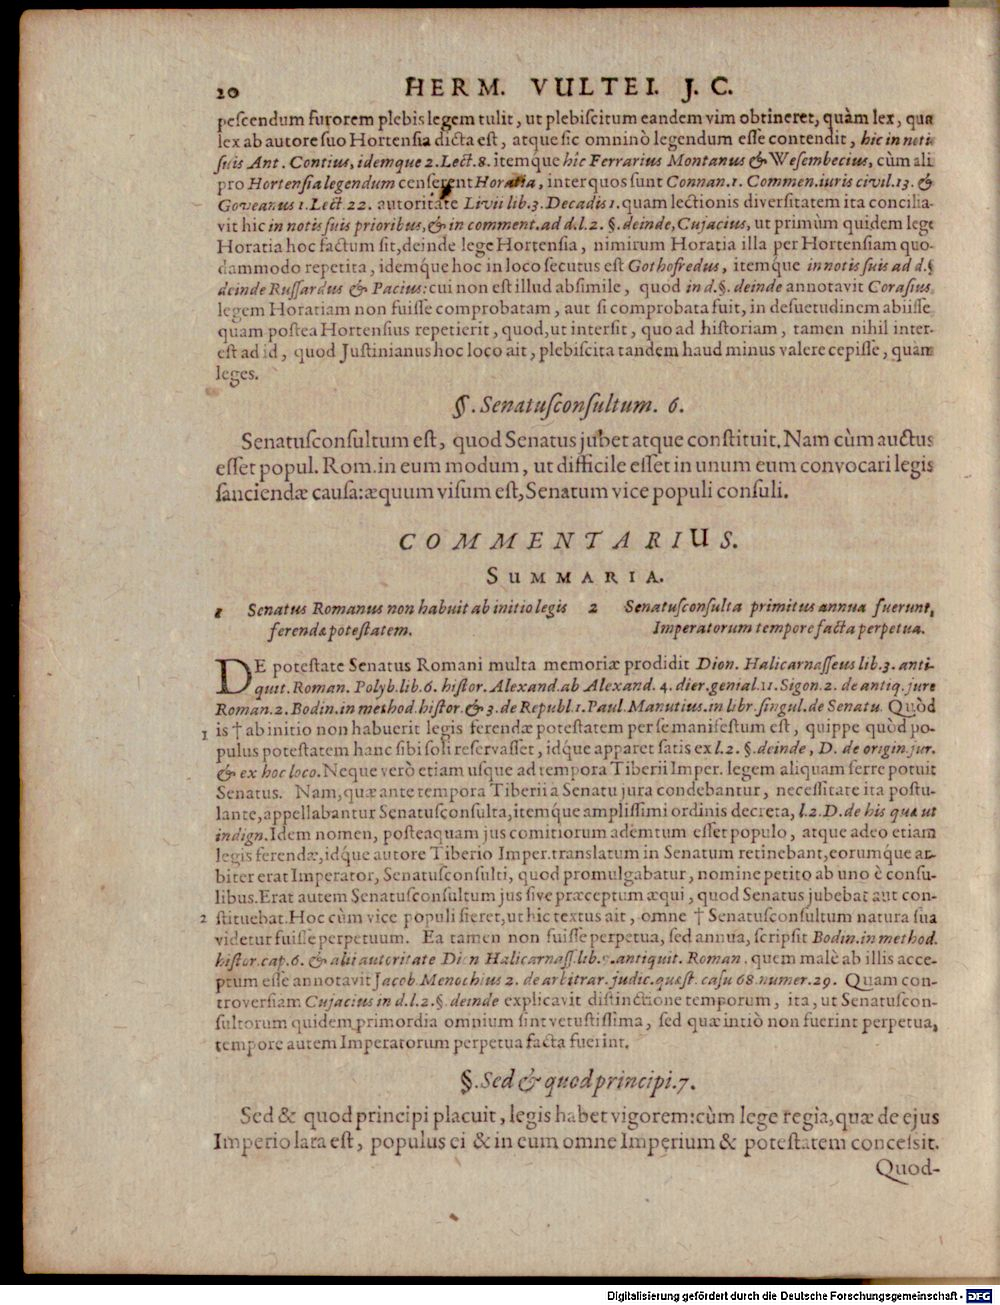 20 HERM. VULTEI. J. C.
pescendum furorem plebis legem tulit, ut plebiscitum eandem vim obtineret, quàm lex, quæ
lex ab autore suo Hortensia dicta est, atque sic omninò legendum esse contendit, hic in notis
suis Ant. Contius, idemque 2. Lect. 8. itemque hic Ferrarius Montanus & Wesembecius, cùm alii
pro Hortensia legendum censerent Horatia, inter quos sunt Connan. 1. Commen. iuris civil. 13. &
Goveanus 1. Lect. 22. autoritate Livii lib. 3. Decadis 1. quam lectionis diversitatem ita concilia-
vit hic in notis suis prioribus, & in comment. ad d. l. 2. §. deinde, Cujacius, ut primùm quidem lege
Horatia hoc factum sit, deinde lege Hortensia, nimirum Horatia illa per Hortensiam quo-
dammodo repetita, idemque hoc in loco secutus est Gothofredus, itemque in notis suis ad d. §
deinde Russardus & Pacius: cui non est illud absimile, quod in d. §. deinde annotavit Corasius,
legem Horatiam non fuisse comprobatam, aut si comprobata fuit, in desuetudinem abiisse
quam postea Hortensius repetierit, quod, ut intersit, quo ad historiam, tamen nihil inter-
est ad id, quod Justinianus hoc loco ait, plebiscita tandem haud minus valere cepisse, quàm
leges.
§. Senatusconsultum. 6.
Senatusconsultum est, quod Senatus jubet atque constituit. Nam cùm auctus
esset popul. Rom. in eum modum, ut difficile esset in unum eum convocari legis
sanciendæ causa: æquum visum est, Senatum vice populi consuli.
COMMENTARIUS.
SUMMARIA.
1 Senatus Romanus non habuit ab initio legis
ferendæ potestatem.
2 Senatusconsulta primitus annua fuerunt,
Imperatorum tempore facta perpetua.
DE potestate Senatus Romani multa memoriæ prodidit Dion. Halicarnasseus lib. 3. anti-
quit. Roman. Polyb. lib. 6. histor. Alexand. ab Alexand. 4. dier. genial. 11. Sigon. 2. de antiq. jure
Roman. 2. Bodin. in method. histor. & 3. de Republ. 1. Paul. Manutius. in libr. singul. de Senatu. Quòd
1 is † ab initio non habuerit legis ferendæ potestatem per se manifestum est, quippe quòd po-
pulus potestatem hanc sibi soli reservasset, idque apparet satis ex l. 2. §. deinde, D. de origin. jur.
& ex hoc loco. Neque verò etiam usque ad tempora Tiberii Imper. legem aliquam ferre potuit
Senatus. Nam, quæ ante tempora Tiberii à Senatu jura condebantur, necessitate ita postu-
lante, appellabantur Senatusconsulta, itemque amplissimi ordinis decreta, l. 2. D. de his quæ ut
indign. Idem nomen, posteaquam jus comitiorum ademtum esset populo, atque adeo etiam
legis ferendæ, idque autore Tiberio Imper. translatum in Senatum retinebant, eorumque ar-
biter erat Imperator, Senatusconsulti, quod promulgabatur, nomine petito ab uno è consu-
libus. Erat autem Senatusconsultum jus sive præceptum æqui, quod Senatus jubebat aut con-
2 stituebat. Hoc cùm vice populi fieret, ut hic textus ait, omne † Senatusconsultum natura sua
videtur fuisse perpetuum. Ea tamen non fuisse perpetua, sed annua, scripsit Bodin. in method.
histor. cap. 6. & alii autoritate Dion Halicarnass. lib. 5. antiquit. Roman. quem malè ab illis acce-
ptum esse annotavit Jacob. Menochius 2. de arbitrar. judic. quæst. casu 68. numer. 29. Quam con-
troversiam Cujacius in d. l. 2. §. deinde explicavit distinctione temporum, ita, ut Senatuscon-
sultorum quidem primordia omnium sint vetustissima, sed quæ intiò non fuerint perpetua,
tempore autem Imperatorum perpetua facta fuerint.
§. Sed & quod principi. 7.
Sed & quod principi placuit, legis habet vigorem: cùm lege regia, quæ de ejus
Imperio lata est, populus ei & in eum omne Imperium & potestatem concessit.
Quod-
Digitalisierung gefördert durch die Deutsche Forschungsgemeinschaft - DFG